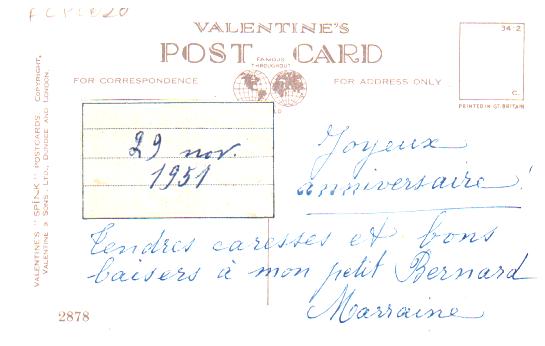 VALENTINE'S
POST CARD
FAMOUS
THROUGHOUT
FOR CORRESPONDENCE
FOR ADDRESS ONLY
34 2
C.
PRINTED IN GT. BRITAIN
VALENTINE'S "SPINK" POSTCARDS. COPYRIGHT,
VALENTINE & SONS LTD., DUNDEE AND LONDON.
29 nov.
1951
Joyeux
anniversaire!
Tendres caresses et bons
baisers à mon petit Bernard
Marraine
2878